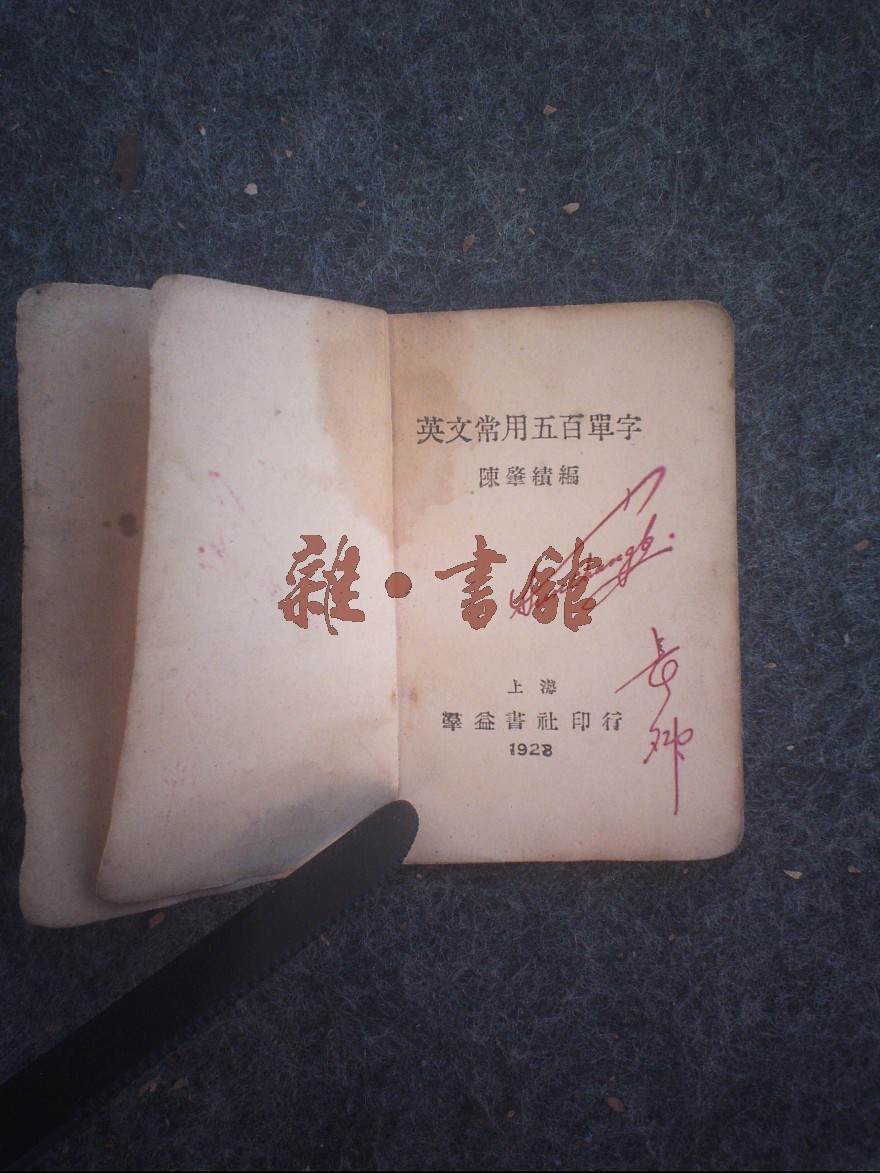 英文常用五百單字
陳肇績編
雜·書館
上海
羣益書社印行
1928